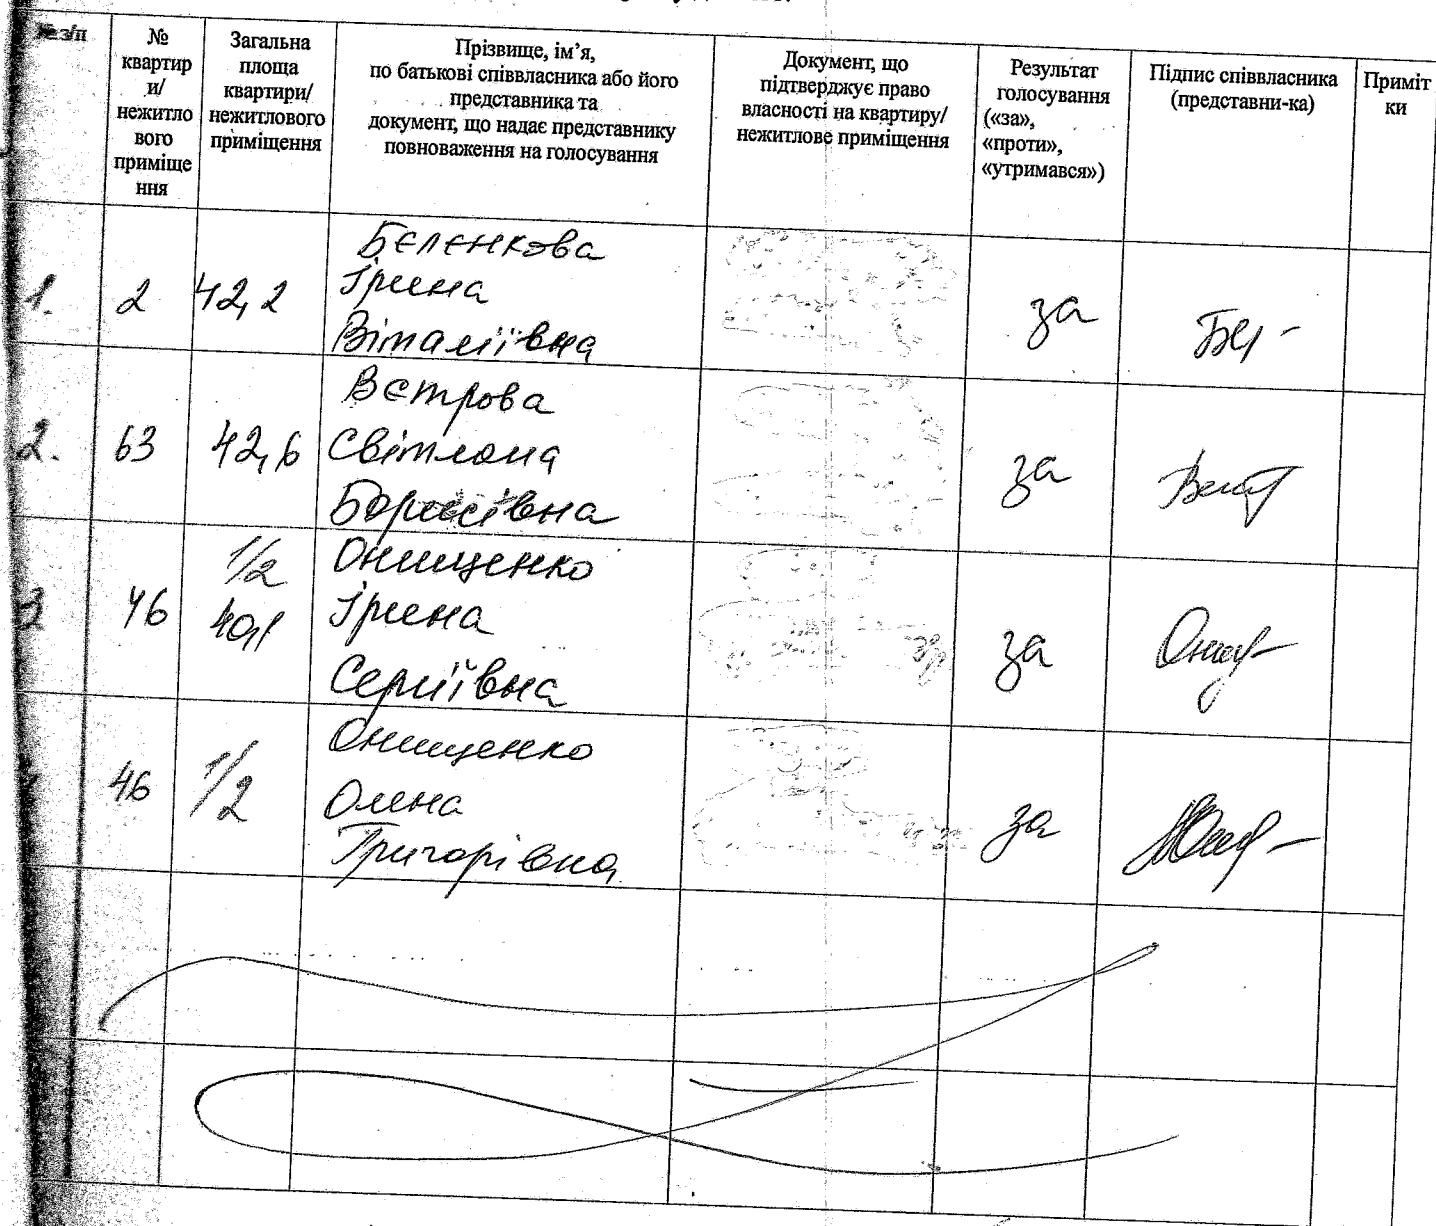 № з/п
№
квартир
и/
нежитло
вого
приміще
ння
Загальна
площа
квартири/
нежитлового
приміщення
Прізвище, ім’я,
по батькові співвласника або його
представника та
документ, що надає представнику
повноваження на голосування
Документ, що
підтверджує право
власності на квартиру/
нежитлове приміщення
Результат
голосування
(«за»,
«проти»,
«утримався»)
Підпис співвласника
(представни-ка)
Приміт
ки
1.
2
42,2
Бєлєнкова
Ірина
Віталіївна
за
2.
63
42,6
Вєтрова
Світлана
Борисівна
за
3
46
1/2
40,1
Онищенко
Ірина
Сергіївна
за
46
1/2
Онищенко
Олена
Григорівна
за